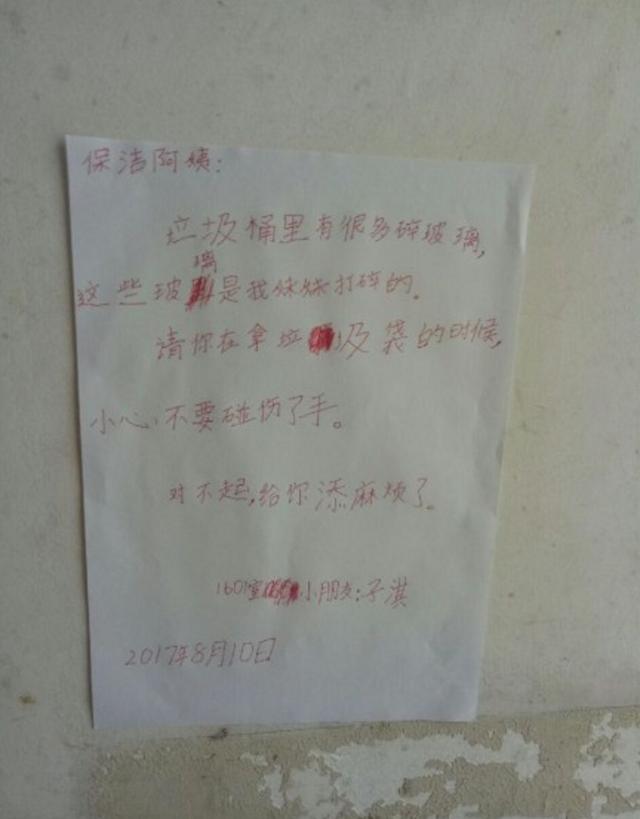 保洁阿姨:
垃圾桶里有很多碎玻璃,
这些玻璃是我妹妹打碎的。
请你在拿垃圾袋的时候,
小心,不要碰伤了手。
对不起,给你添麻烦了。
1601室小朋友:子淇
2017年8月10日